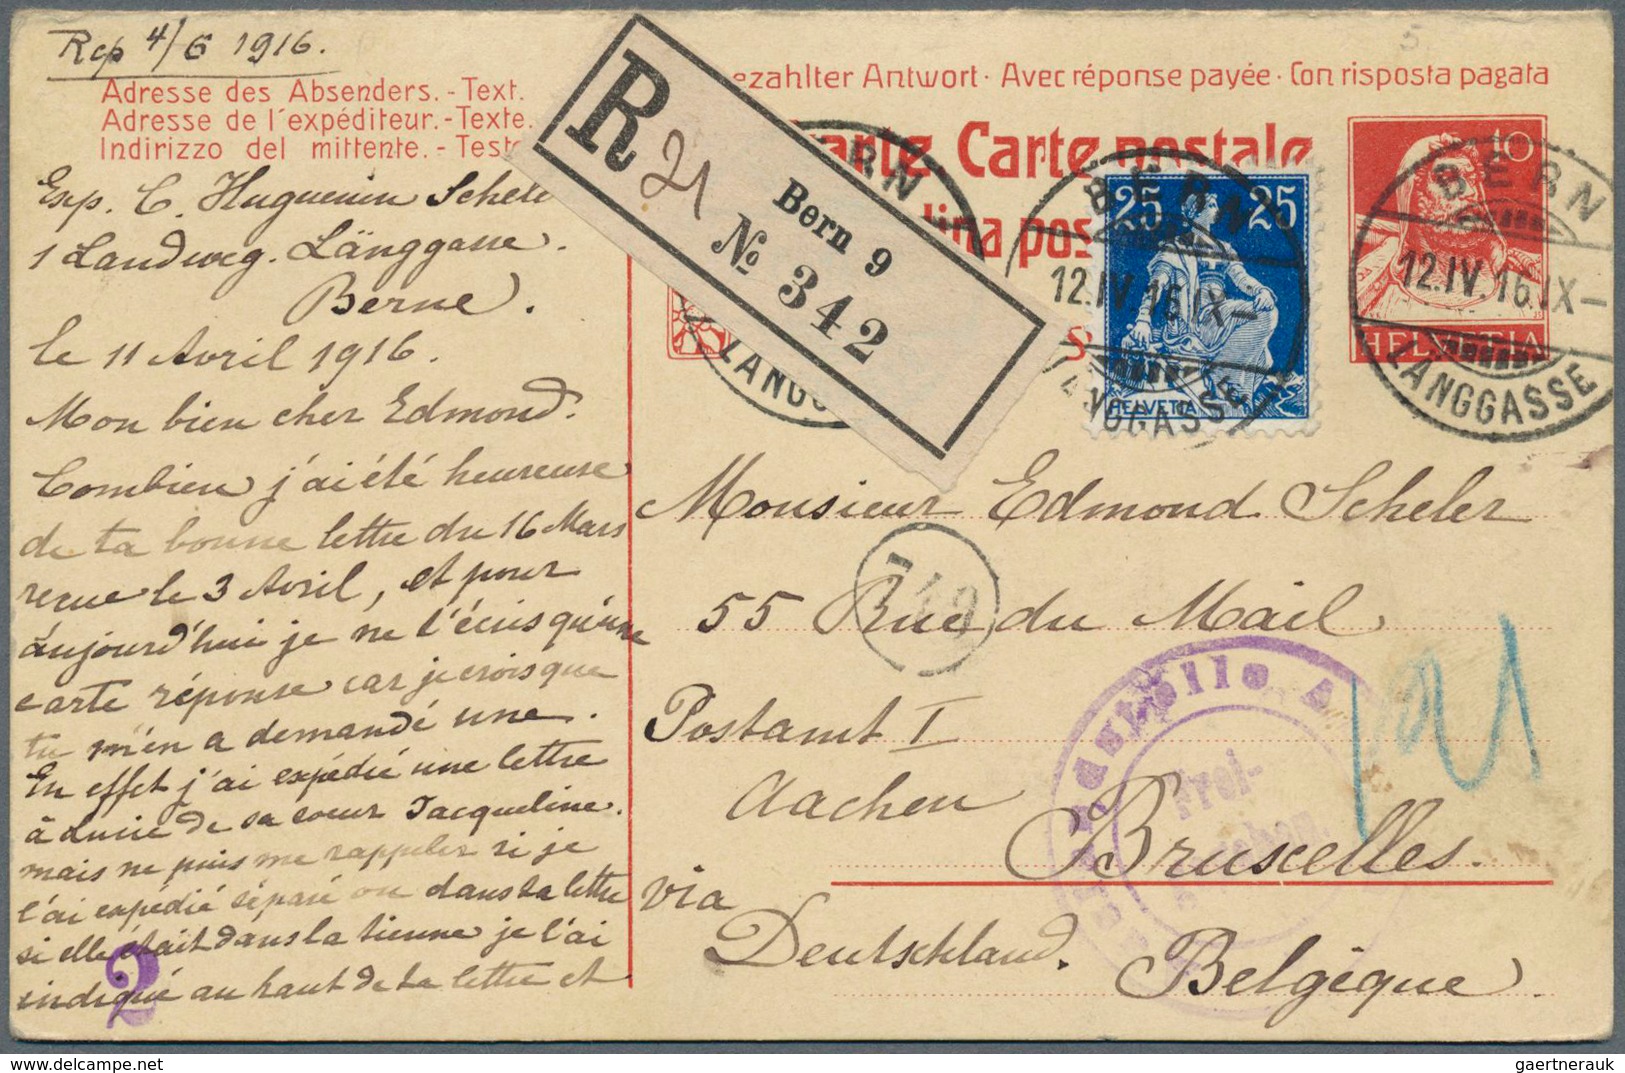 Rep 4/6 1916.
Adresse des Absenders. - Text.
Adresse de l'expéditeur. - Texte.
Indirizzo del mittente. - Testo
Exp. C. Huguenin Schele
1 Landweg. Länggasse.
Berne.
le 11 Avril 1916.
Mon bien cher Edmond.
Combien j'ai été heureuse
de ta bonne lettre du 16 Mars
reçue le 3 Avril, et pour
aujourd'hui je ne t'écris qu'une
carte réponse car je crois que
tu m'en a demandé une.
En effet j'ai expédié une lettre
à Lucie de sa soeur Jacqueline.
mais ne puis me rappeler si je
l'ai expédié séparé ou dans ta lettre
si elle était dans la tienne je l'ai
indiqué au haut de ta lettre et
2
ezahlter Antwort · Avec réponse payée · Con risposta pagata
arte Carte postale
tina pos
R 21
Bern 9
№ 342
BERN
LÄNGG
25 25
HELVETIA
BERN
12.IV.16.IX–
LÄNGGASSE
10
HELVETIA
BERN
12.IV.16.IX–
LÄNGGASSE
Monsieur Edmond Scheler
749
55 Rue du Mail
Postamt I
Aachen
Bruxelles.
via
Deutschland.
Belgique.
Frei-
gaertnerauk @ delcampe.net